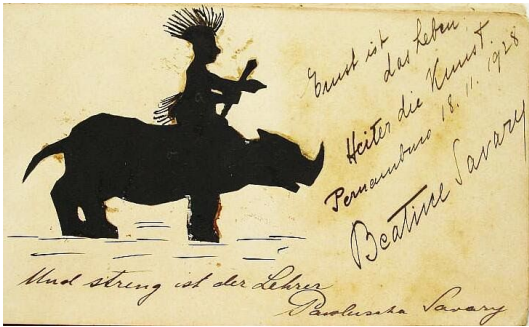 Ernst ist
das Leben
Heiter die Kunst.
Pernambuco 18.11.1928
Beatrice Savary
Und streng ist der Lehrer
Savary